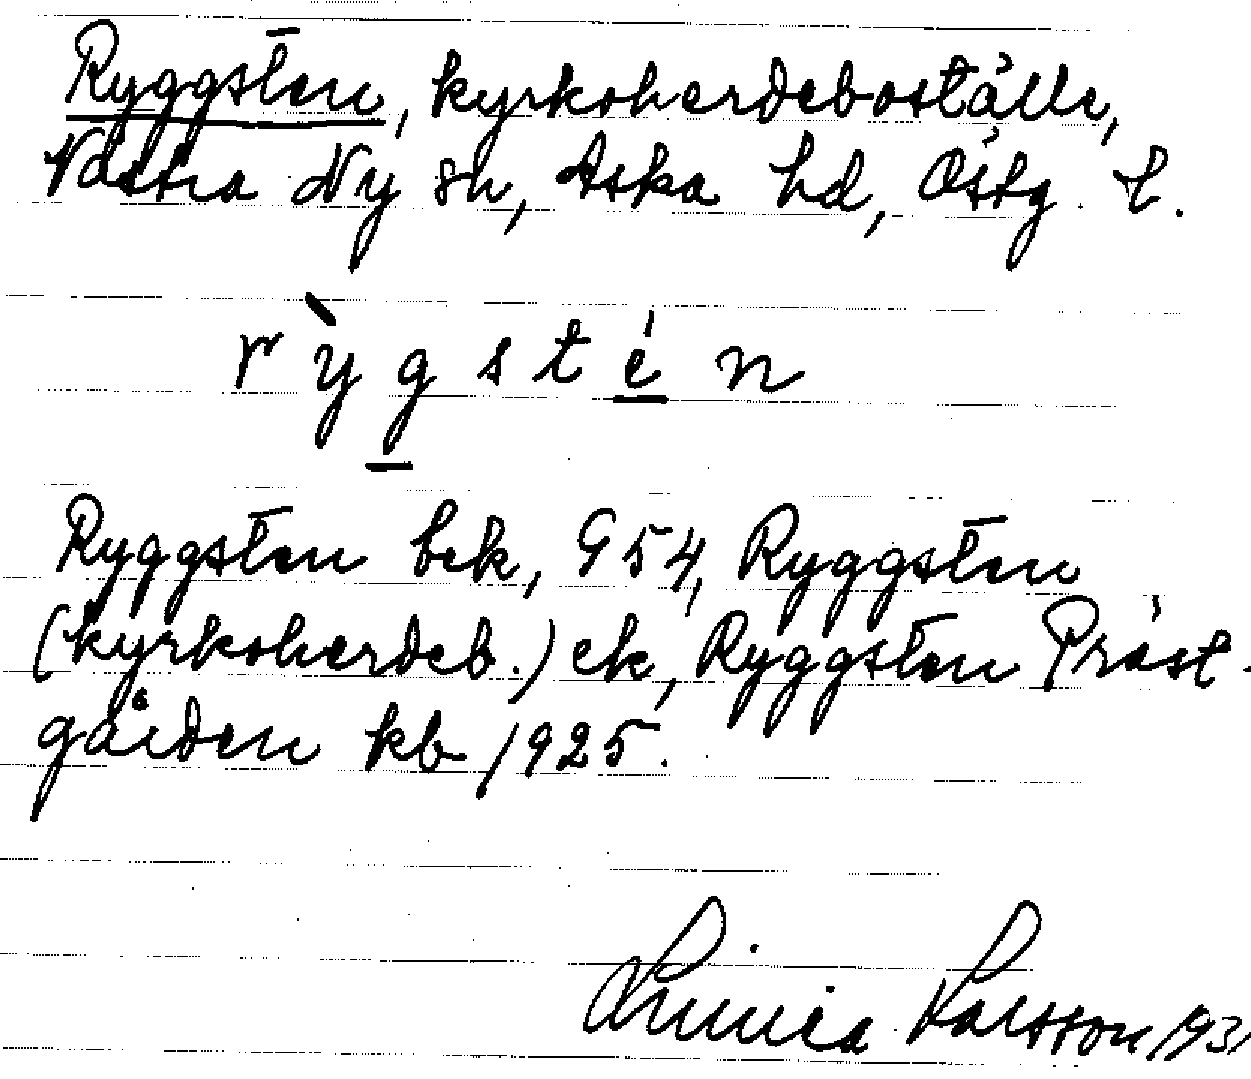 Ryggsten, kyrkoherdeboställe,
Västra Ny sn, Aska hd, Östg. l.
rỳgstén
Ryggsten bek, G54, Ryggsten
(kyrkoherdeb.) ek, Ryggsten Präst-
gården kb 1925.
Linnéa Larsson 1931